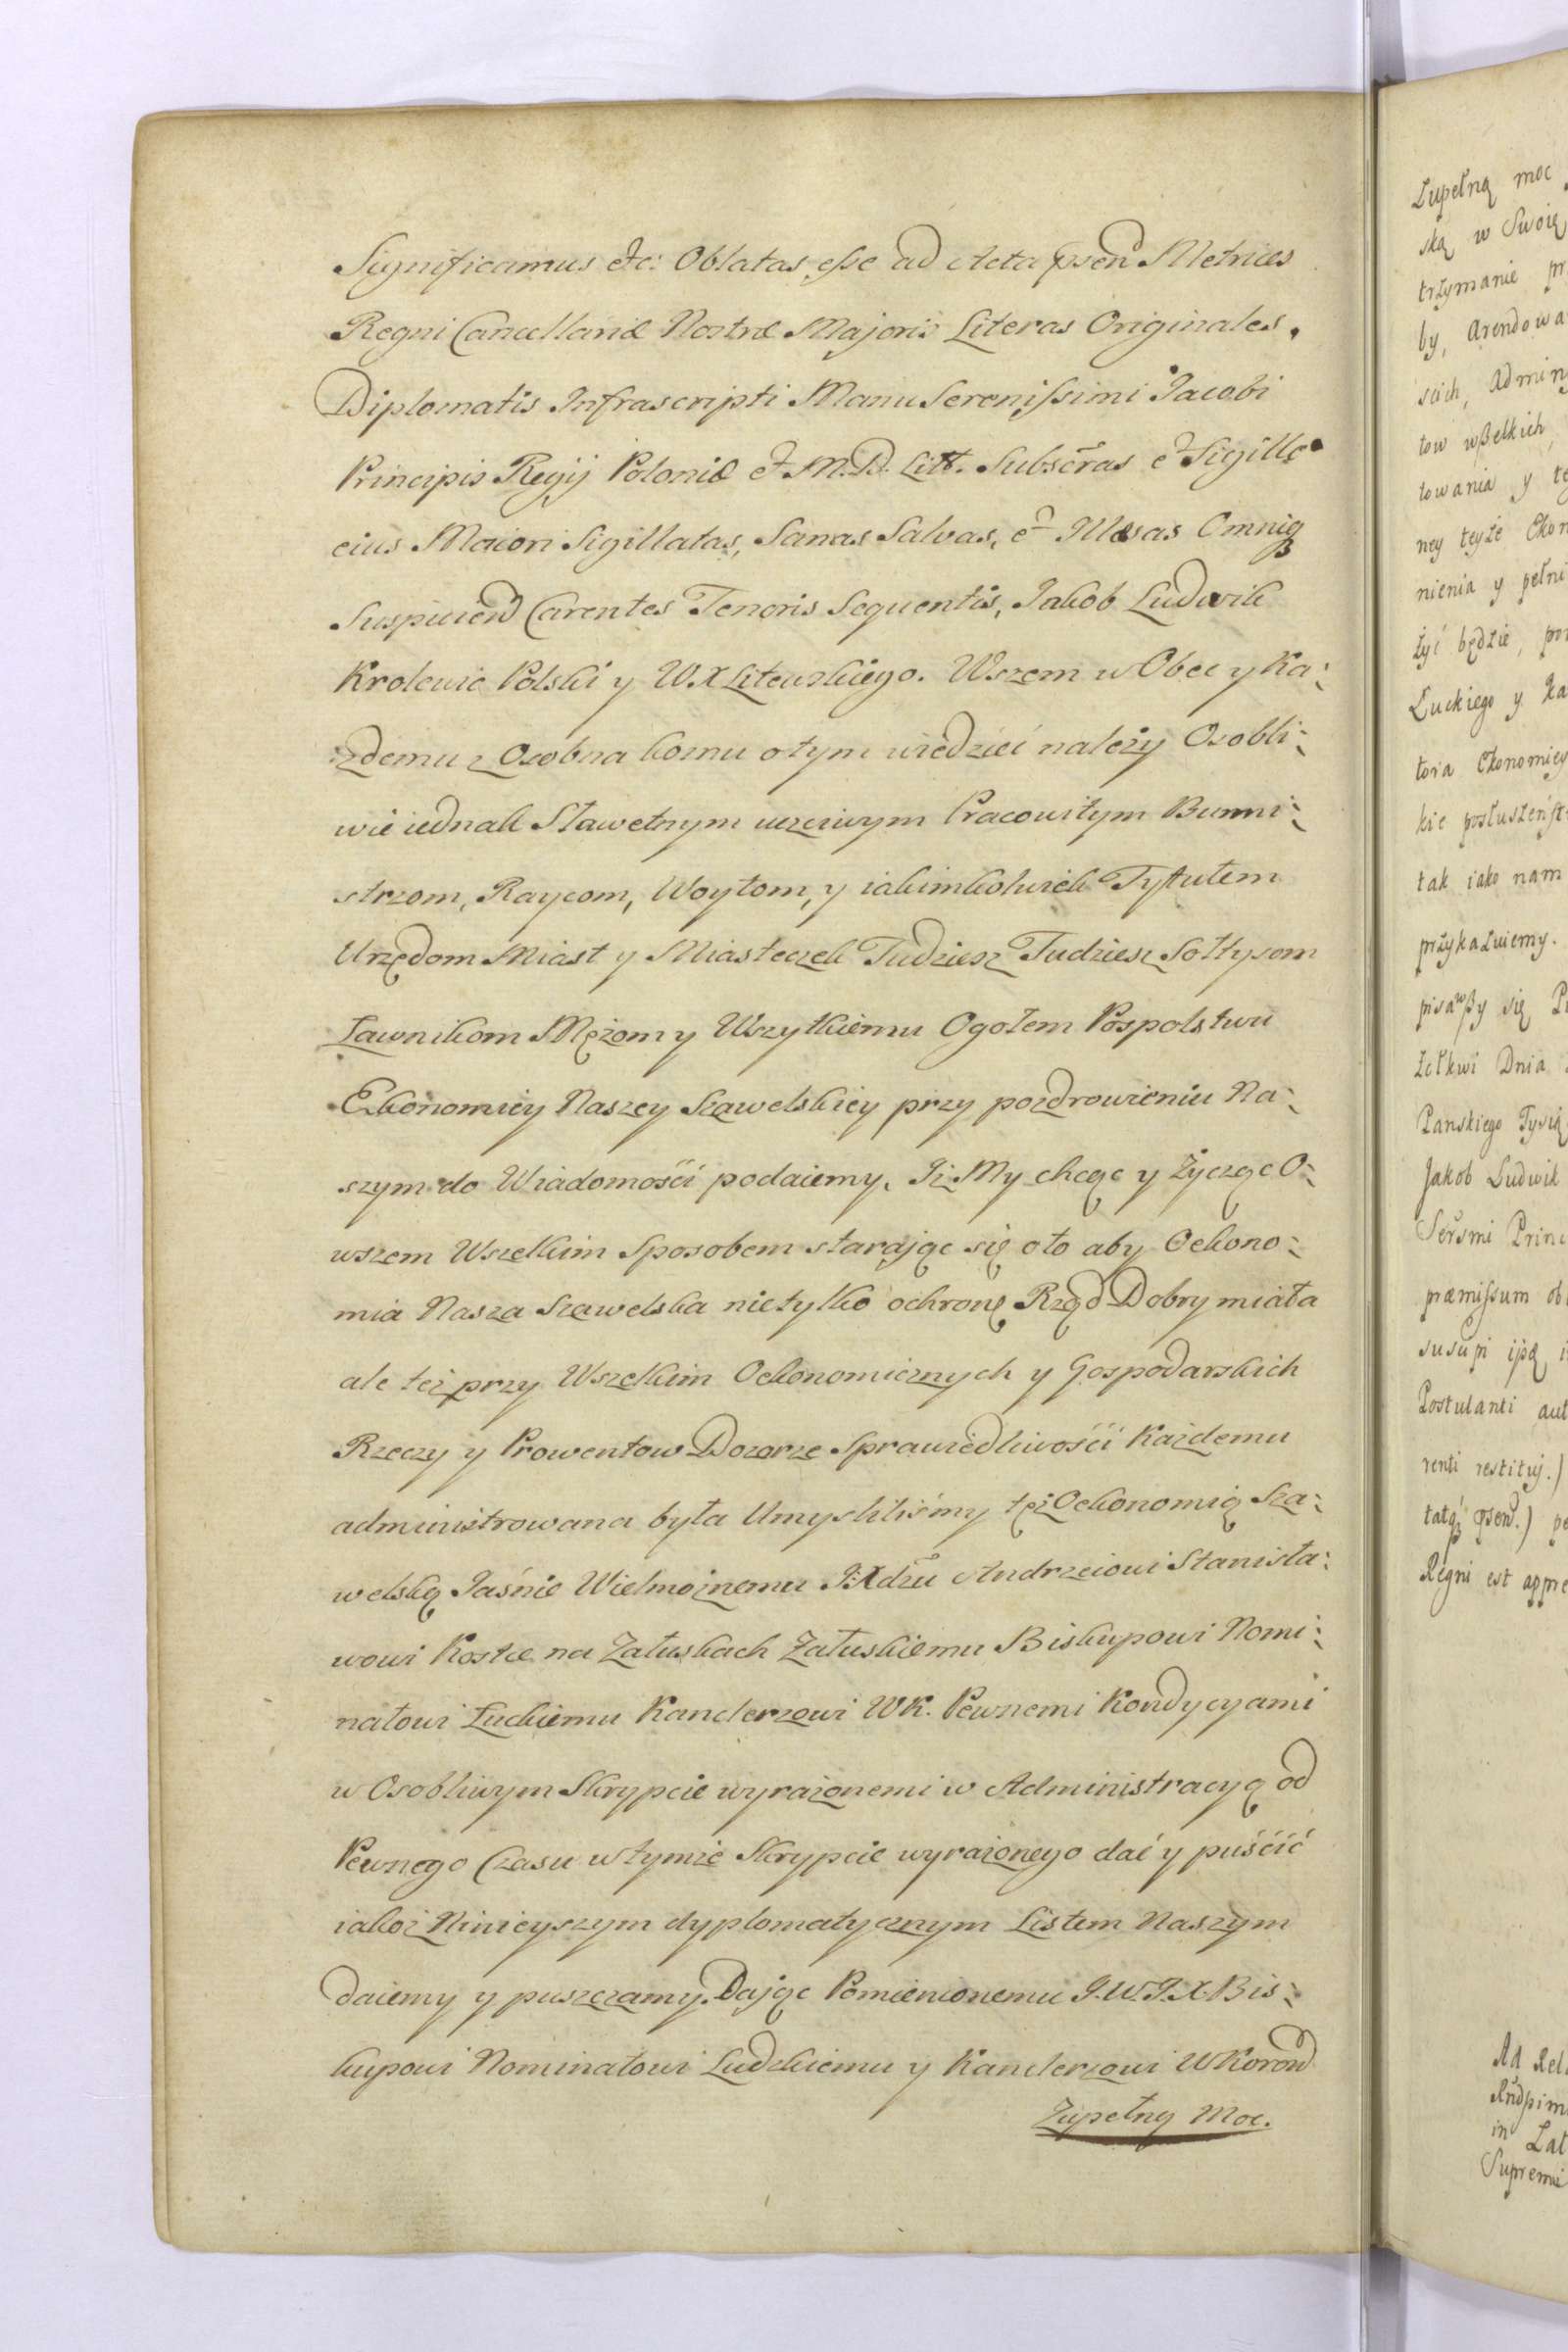 Significamus etc: Oblatas esse ad Acta psen̄ Metrices
Regni Cancellariæ Nostræ Majoris Literas Originales.
Diplomatis Infrascripti Manu Serenissimi Jacobi
Principis Regij Poloniæ et M.D. Litt. Subscr̄as et Sigillo
eius Maiori Sigillatas, Sanas Salvas, et Illæsas Omniq;
Suspicien̄ Carentes Tenoris Sequentis, Jakob Ludwik
Krolewic Polski y W.X Litewskiego. Wszem w Obec y Ka:
zdemu z Osobna komu otym wiedzieć należy Osobli:
wie iednak Sławetnym uczciwym Pracowitym Burmi:
strzom, Raycom, Woytom, y iakimkolwiek Tytułem
Urzędom Miast y Miasteczek Tudziesz Tudziesz Sołtysom
Ławnikom Mężom y Wszytkiemu Ogołem Pospolstwu
Ekonomiey Naszey Szawelskiey przy pozdrowieniu Na:
szym do Wiadomośći podaiemy, Iż My chcąc y Życząc O:
wszem Wszelkim Sposobem starając się oto aby Oekono:
mia Nasza Szawelska nietylko ochronę Rząd Dobry miała
ale też przy Wszelkim Oekonomicznych y Gospodarskich
Rzeczy y Prowentow Dozorze Sprawiedliwośći Każdemu
administrowana była Umyśliliśmy tęż Oekonomią Sza:
welską Jaśnie Wielmożnemu JXdzu Andrzeiowi Stanisła:
wowi Kostce na Załuskach Załuskiemu Biskupowi Nomi:
natowi Łuckiemu Kanclerzowi WK. Pewnemi Kondycyami
w Osobliwym Skrypcie wyrażonemi w Administracyą od
Pewnego Czasu w tymże Skrypcie wyrażonego dać y puśćić
iakoż Ninieyszym dyplomatycznym Listem Naszym
daiemy y puszczamy. Dając Pomienionemu J.W.J.X. Bis:
kupowi Nominatowi Ludzkiemu y Kanclerzowi WKoron̄
Zupełną Moc.
Zupełną moc
ską w Swoię
trzymanie
by, Arendowa
scich, Admin
tow wszelkich
towania y
ney teyże Ekon
nienia y pełni
żyć będzie,
Łuckiego y
toria Ekonomiey
kie posłuszeńst
tak iako nam
przykazuiemy.
pisawszy się
Żołkwi Dnia
Panskiego Tysią
Jakob Ludwik
Ser̄smi Princ
præmissum
susūpi ijsq
Postulanti
renti restituj.)
tatq; psen̄.)
Regni est appre
Ad Rel
in
Supremi